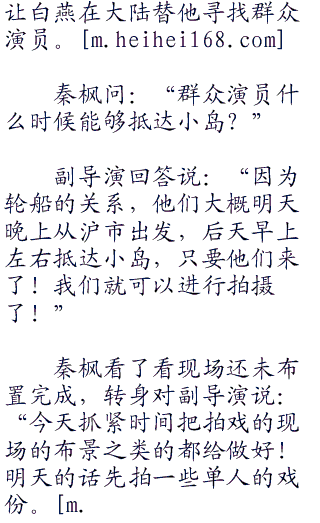 让白燕在大陆替他寻找群众
演员。[m.heihei168.com]
秦枫问：“群众演员什
么时候能够抵达小岛？”
副导演回答说：“因为
轮船的关系，他们大概明天
晚上从沪市出发，后天早上
左右抵达小岛，只要他们来
了！我们就可以进行拍摄
了！”
秦枫看了看现场还未布
置完成，转身对副导演说：
“今天抓紧时间把拍戏的现
场的布景之类的都给做好！
明天的话先拍一些单人的戏
份。[m.